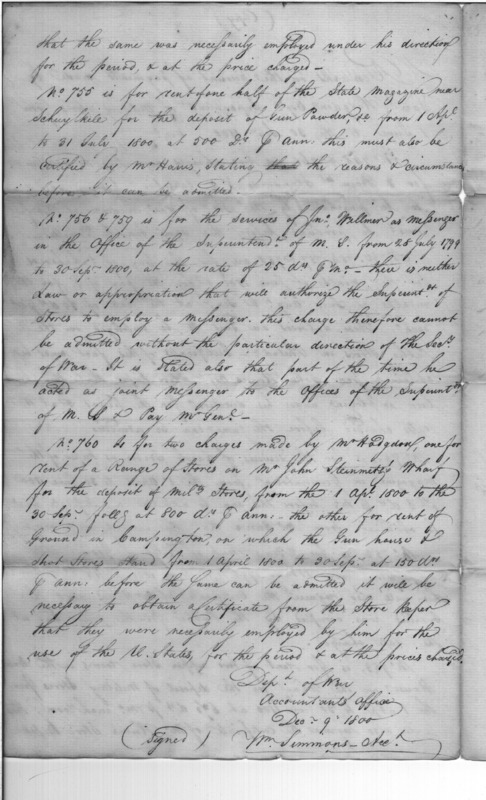 that the same was necessarily employed under his direction
for the period, & at the price charged –
No 755 is for rent of one half of the State Magazine near
Schuylkele for the deposit of Gun Powder &c from 1 Apl.
to 31 July 1800, at 500 Ds ⅌ Ann. this must also be
certified by Mr Harris, stating that the reasons & circumstances
before it can be admitted.
No. 756 & 759 is for the services of Jno. Willmer as Messenger
in the Office of the Superintendt. of M. S. from 25 July 1799
to 30 Sepr. 1800, at the rate of 25 ds ⅌ Mo – there is neither
Law or appropriation that will authorize the Superintt. of
Stores to employ a Messenger. this charge therefore cannot
be admitted without the particular direction of the Secy.
of War – It is stated also that part of the time he
acted as joint Messenger to the Offices of the Superintt.
of M. S & Pay Mr Genl. –
No. 760 is for two charges made by Mr Hodgdon, one for
rent of a Range of Stores on Mr John Steinmetz's Wharf
for the deposit of Mily. Stores, from the 1 Apl. 1800 to the
30 Sepr. follg at 800 ds ⅌ Ann. – the other for rent of
Ground in Campington, on which the Gun house &
Shot Stores stand from 1 April 1800 to 30 Sepr. at 150 dls
⅌ ann. before the same can be admitted it will be
necessary to obtain a Certificate from the Store keeper
that they were necessarily employed by him for the
use of the U. States, for the period & at the prices charged.
Dept. of War
Accountants Office
Decr. 9 1800
(signed) Wm. Simmons – Acct.